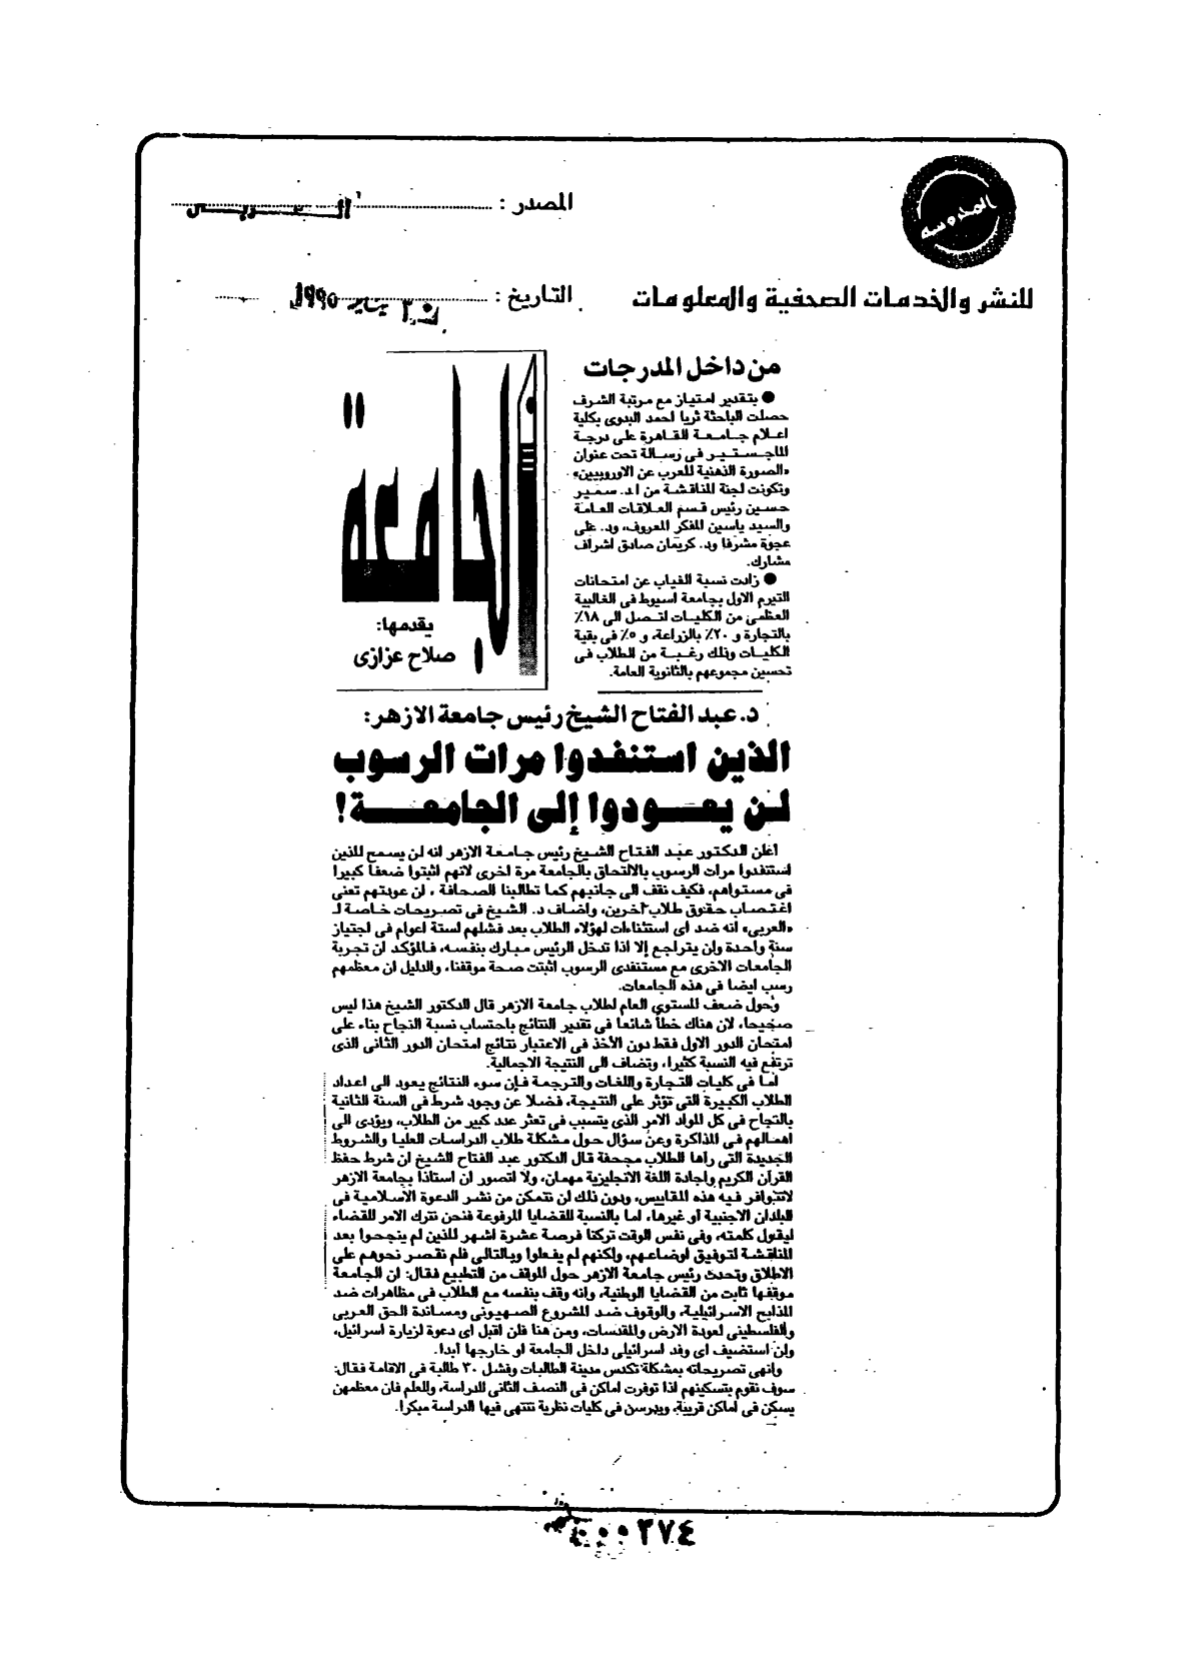 المدرسة
للنشر والخدمات الصحفية والمعلومات
المصدر : العربى
التاريخ : ٣٠ يناير ١٩٩٥
من داخل المدرجات
● بتقدير امتياز مع مرتبة الشرف
حصلت الباحثة ثريا احمد البدوى بكلية
اعلام جامعة القاهرة على درجة
الماجستير فى رسالة تحت عنوان
«الصورة الذهنية للعرب عن الاوروبيين»
وتكونت لجنة المناقشة من أ.د. سمير
حسين رئيس قسم العلاقات العامة
والسيد ياسين المفكر المعروف، ود. على
عجوة مشرفا ود. كريمان صادق اشراف
مشارك.
● زادت نسبة الغياب عن امتحانات
التيرم الاول بجامعة اسيوط فى الغالبية
العظمى من الكليات لتصل الى ١٨٪
بالتجارة و ٢٠٪ بالزراعة، و ٥٪ فى بقية
الكليات وذلك رغبة من الطلاب فى
تحسين مجموعهم بالثانوية العامة.
الجامعة
يقدمها:
صلاح عزازى
د. عبد الفتاح الشيخ رئيس جامعة الازهر:
الذين استنفدوا مرات الرسوب
لن يعودوا إلى الجامعة!
اعلن الدكتور عبد الفتاح الشيخ رئيس جامعة الازهر انه لن يسمح للذين
استنفدوا مرات الرسوب بالالتحاق بالجامعة مرة اخرى لانهم اثبتوا ضعفا كبيرا
فى مستواهم، فكيف نقف الى جانبهم كما تطالبنا الصحافة ، لن عودتهم تعنى
اغتصاب حقوق طلاب آخرين، واضاف د. الشيخ فى تصريحات خاصة لـ
«العربى» انه ضد اى استثناءات لهؤلاء الطلاب بعد فشلهم لستة اعوام فى اجتياز
سنة واحدة ولن يتراجع إلا اذا تدخل الرئيس مبارك بنفسه، فالمؤكد ان تجربة
الجامعات الاخرى مع مستنفدى الرسوب اثبتت صحة موقفنا، والدليل ان معظمهم
رسب ايضا فى هذه الجامعات.
وحول ضعف المستوى العام لطلاب جامعة الازهر قال الدكتور الشيخ هذا ليس
صحيحا، لان هناك خطأ شائعا فى تقدير النتائج باحتساب نسبة النجاح بناء على
امتحان الدور الاول فقط دون الأخذ فى الاعتبار نتائج امتحان الدور الثانى الذى
ترتفع فيه النسبة كثيرا، وتضاف الى النتيجة الاجمالية.
اما فى كليات التجارة واللغات والترجمة فإن سوء النتائج يعود الى اعداد
الطلاب الكبيرة التى تؤثر على النتيجة، فضلا عن وجود شرط فى السنة الثانية
بالنجاح فى كل المواد الامر الذى يتسبب فى تعثر عدد كبير من الطلاب، ويؤدى الى
اهمالهم فى المذاكرة وعن سؤال حول مشكلة طلاب الدراسات العليا والشروط
الجديدة التى رآها الطلاب مجحفة قال الدكتور عبد الفتاح الشيخ ان شرط حفظ
القرآن الكريم واجادة اللغة الانجليزية مهمان، ولا اتصور ان استاذا بجامعة الازهر
لاتتوافر فيه هذه المقاييس، وبدون ذلك لن نتمكن من نشر الدعوة الاسلامية فى
البلدان الاجنبية او غيرها، اما بالنسبة للقضايا المرفوعة فنحن نترك الامر للقضاء
ليقول كلمته، وفى نفس الوقت تركنا فرصة عشرة اشهر للذين لم ينجحوا بعد
المناقشة لتوفيق اوضاعهم، ولكنهم لم يفعلوا وبالتالى فلم نقصر نحوهم على
الاطلاق وتحدث رئيس جامعة الازهر حول الموقف من التطبيع فقال: ان الجامعة
موقفها ثابت من القضايا الوطنية، وانه وقف بنفسه مع الطلاب فى مظاهرات ضد
المذابح الاسرائيلية، والوقوف ضد المشروع الصهيونى ومساندة الحق العربى
والفلسطينى لعودة الارض والمقدسات، ومن هنا فلن اقبل اى دعوة لزيارة اسرائيل،
ولن استضيف اى وفد اسرائيلى داخل الجامعة او خارجها أبدا.
وانهى تصريحاته بمشكلة تكدس مدينة الطالبات وفشل ٣٠ طالبة فى الاقامة فقال:
سوف نقوم بتسكينهم اذا توفرت اماكن فى النصف الثانى للدراسة، وللعلم فان معظمهن
يسكن فى اماكن قريبة، ويدرسن فى كليات نظرية تنتهى فيها الدراسة مبكرا.
٣٧٤